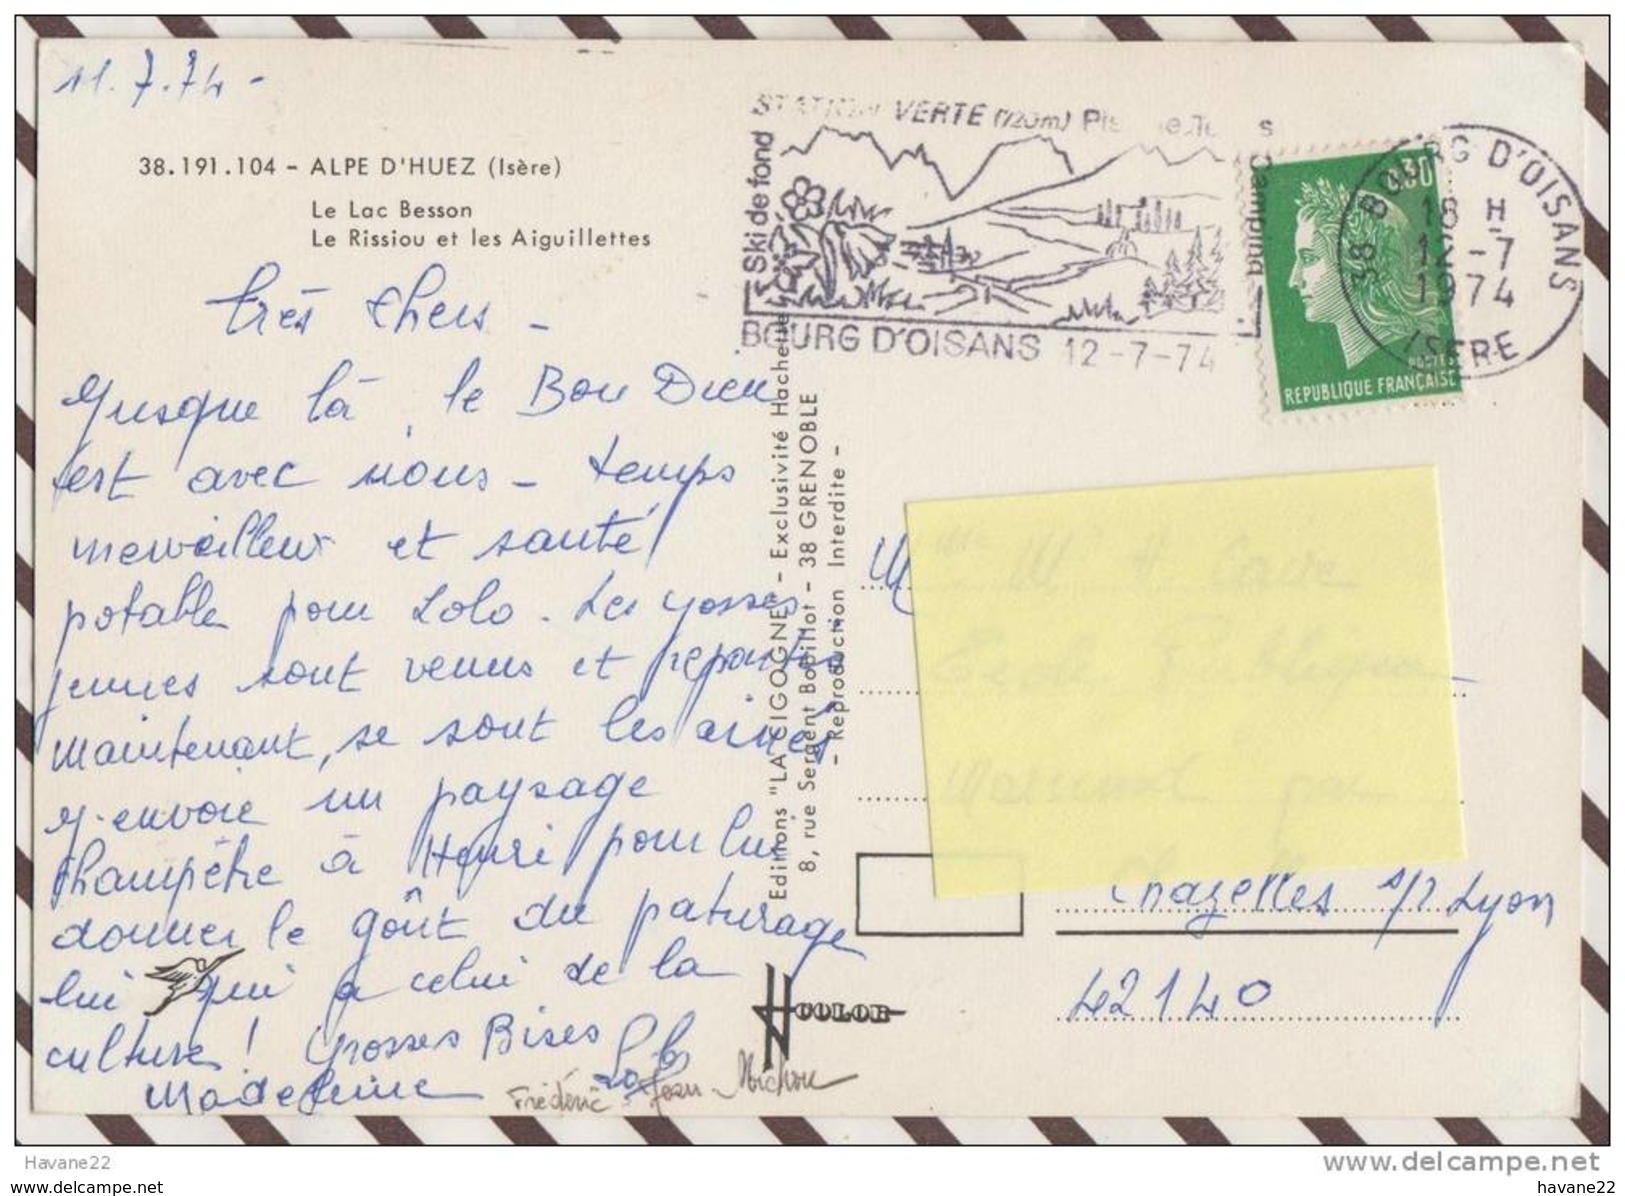 11.7.74 -
38.191.104 - ALPE D'HUEZ (Isère)
Le Lac Besson
Le Rissiou et les Aiguillettes
très chers -
Jusque là, le Bon Dieu
est avec nous - temps
merveilleux et santé
potable pour Lolo. Les gosses
jeunes sont venus et repartis
maintenant, se sont les aînés
J'envoie un paysage
champêtre à Henri pour lui
donner le goût du paturage
lui qui a celui de la
culture ! Grosses Bises
Madeleine Lolo
Frédéric Jean-Michou
Editions "LA CIGOGNE" - Exclusivité Hachette
8, rue Sergent Bobillot - 38 GRENOBLE
- Reproduction Interdite -
COLOR
STATION VERTE (720m)
Ski de fond
Camping
BOURG D'OISANS 12-7-74
38 BOURG D'OISANS
18 H
12-7
1974
ISERE
0.30
POSTES
REPUBLIQUE FRANÇAISE
Chazelles s/ Lyon
42140
Havane22
www.delcampe.net
havane22.com
havane22